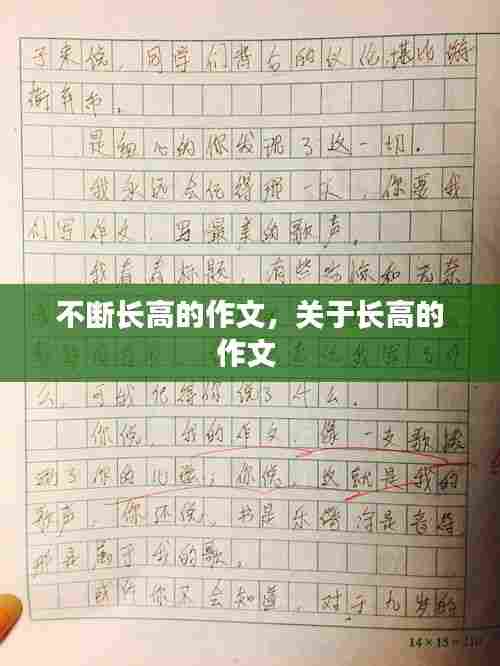 子来说，同学们背后的议论堪比游
街弃市。
是细心的你发现了这一切。
我永远会记得那一天，你要我
们写作文，写最美的歌声。
我看着标题，有些
不断长高的作文，关于长高的
作文
么，可我记得你说了什么。
你说，我的作文，像一支歌，
到了你的心；你说，这就是我的
歌声，你还说，书是乐谱
那是属于我的歌。
或许你不会知道，对于九岁的
14×15=210